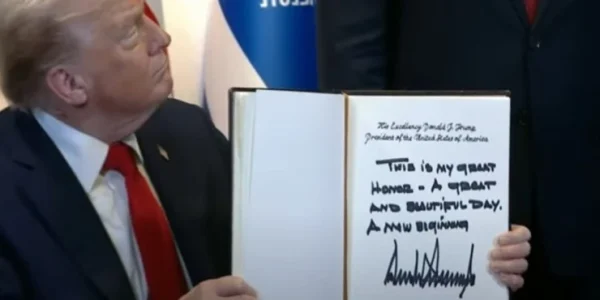 His Excellency Donald J. Trump
President of the United States of America
THIS IS MY GREAT
HONOR - A GREAT
AND BEAUTIFUL DAY.
A NEW BIGINNING